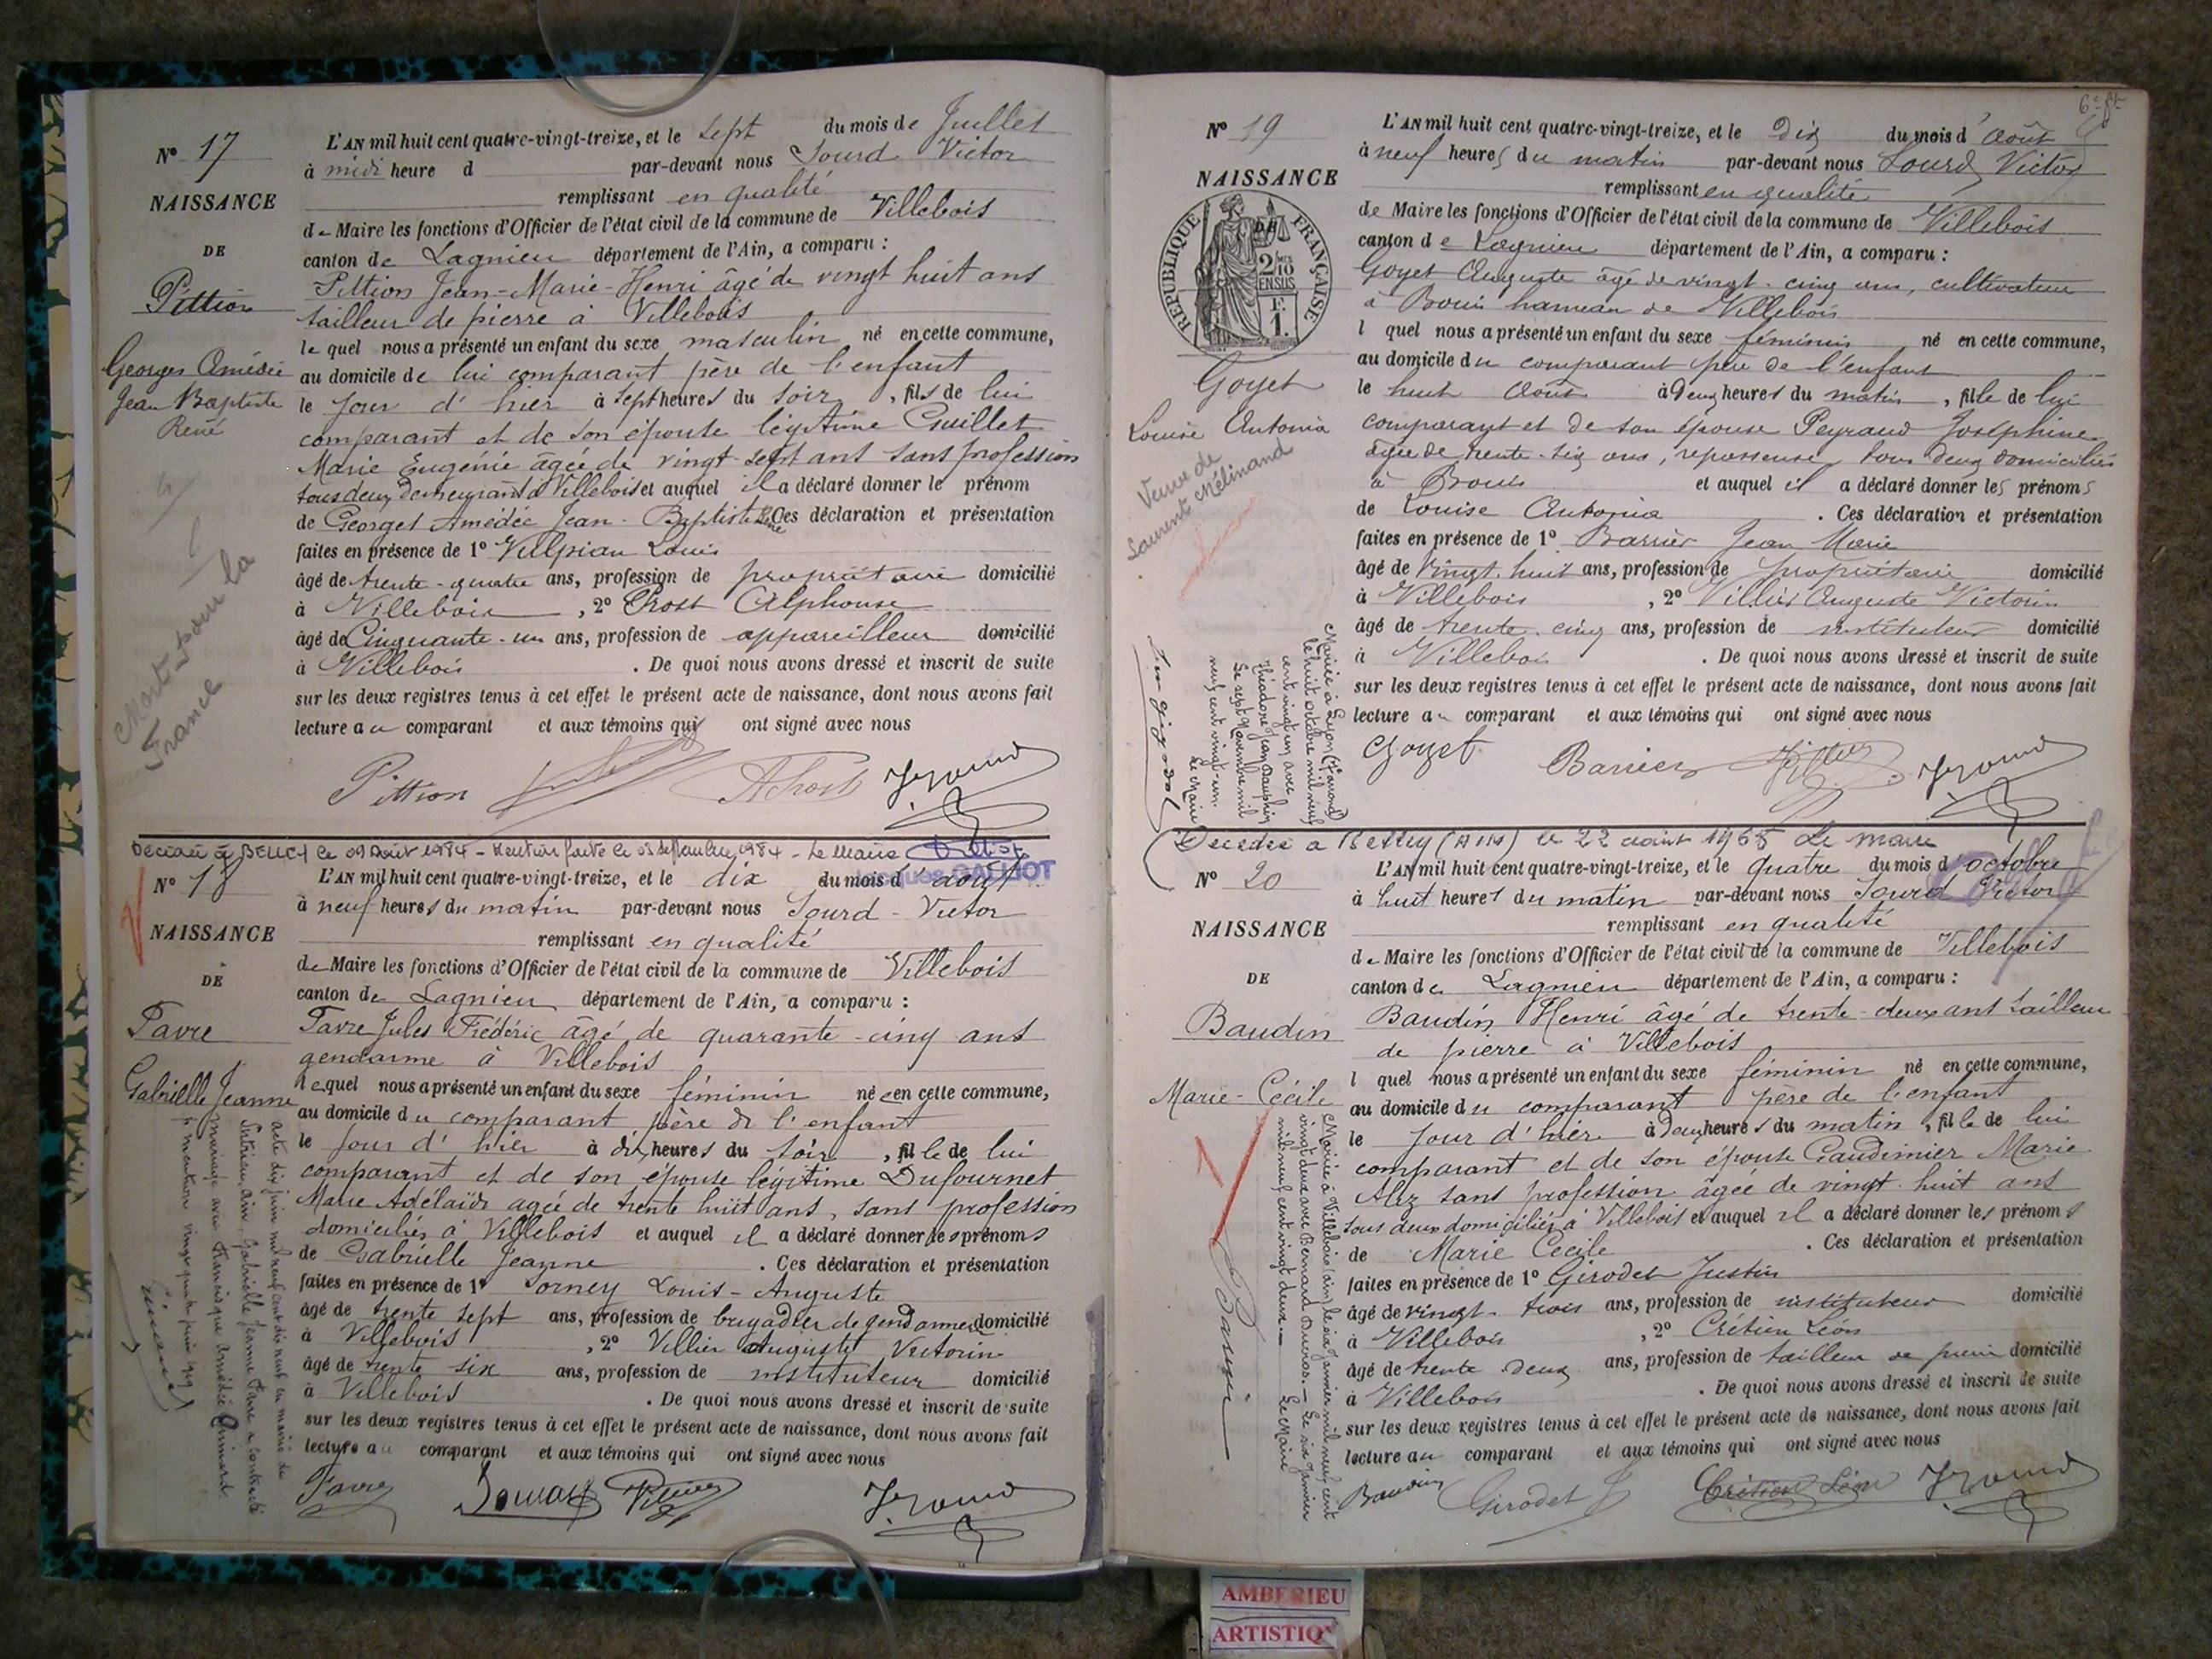 N° 17
NAISSANCE
DE
Pittion
Georges Amédée
Jean Baptiste
René
Mort pour la
France
L'AN mil huit cent quatre-vingt-treize, et le sept du mois de Juillet
à midi heure d par-devant nous Sourd Victor
remplissant en qualité
de Maire les fonctions d'Officier de l'état civil de la commune de Villebois
canton de Lagnieu département de l'Ain, a comparu :
Pittion Jean-Marie-Henri âgé de vingt huit ans
tailleur de pierre à Villebois
le quel nous a présenté un enfant du sexe masculin né en cette commune,
au domicile de lui comparant père de l'enfant
le jour d'hier à sept heures du soir, fils de lui
comparant et de son épouse légitime Guillet
Marie Eugénie âgée de vingt-sept ans sans profession
tous deux demeurant à Villebois et auquel il a déclaré donner le prénom
de Georges Amédée Jean-Baptiste René Ces déclaration et présentation
faites en présence de 1° Vulpian Louis
âgé de trente-quatre ans, profession de propriétaire domicilié
à Villebois, 2° Prost Alphonse
âgé de Cinquante-un ans, profession de appareilleur domicilié
à Villebois. De quoi nous avons dressé et inscrit de suite
sur les deux registres tenus à cet effet le présent acte de naissance, dont nous avons fait
lecture au comparant et aux témoins qui ont signé avec nous
Pittion AProst
Décédée à BELLEY le 09 Août 1984 - Mention faite le 03 septembre 1984 - Le Maire
Jacques GALLIOT
N° 18
NAISSANCE
DE
Favre
Gabrielle Jeanne
L'AN mil huit cent quatre-vingt-treize, et le dix du mois d'août
à neuf heures du matin par-devant nous Sourd-Victor
remplissant en qualité
de Maire les fonctions d'Officier de l'état civil de la commune de Villebois
canton de Lagnieu département de l'Ain, a comparu :
Favre Jules Frédéric âgé de quarante-cinq ans
gendarme à Villebois
lequel nous a présenté un enfant du sexe féminin née en cette commune,
au domicile du comparant père de l'enfant
le jour d'hier à dix heures du soir, fille de lui
comparant et de son épouse légitime Dufournet
Marie Adélaïde agée de trente huit ans, sans profession
domiciliés à Villebois et auquel il a déclaré donner les prénoms
de Gabrielle Jeanne. Ces déclaration et présentation
faites en présence de 1° Louis-Auguste
âgé de trente sept ans, profession de brigadier de gendarmerie domicilié
à Villebois, 2° Villier Auguste Victorin
âgé de trente six ans, profession de instituteur domicilié
à Villebois. De quoi nous avons dressé et inscrit de suite
sur les deux registres tenus à cet effet le présent acte de naissance, dont nous avons fait
lecture au comparant et aux témoins qui ont signé avec nous
Favre
N° 19
NAISSANCE
DE
RÉPUBLIQUE FRANÇAISE
2/10 EN SUS
1 F.
Goyet
Louise Antonia
Veuve de
Laurent Mélinand
Mariée à Lyon
le huit octobre mil neuf
cent vingt un avec
Théodore Jean Dauphin
Le sept Novembre mil
neuf cent vingt-un.
Le Maire
L'AN mil huit cent quatre-vingt-treize, et le Dix du mois d'Août
à neuf heures du matin par-devant nous Sourd Victor
remplissant en qualité
de Maire les fonctions d'Officier de l'état civil de la commune de Villebois
canton de Lagnieu département de l'Ain, a comparu :
Goyet Auguste âgé de vingt-cinq ans, cultivateur
à Bouis hameau de Villebois
l quel nous a présenté un enfant du sexe féminin né en cette commune,
au domicile du comparant père de l'enfant
le huit Août à Deux heures du matin, fille de lui
comparant et de son épouse Peyraud Joséphine
âgée de trente-six ans, repasseuse, tous deux domiciliés
à Bouis et auquel il a déclaré donner les prénoms
de Louise Antonia. Ces déclaration et présentation
faites en présence de 1° Barrier Jean Marie
âgé de Vingt-huit ans, profession de propriétaire domicilié
à Villebois, 2° Villier Auguste Victorin
âgé de trente-cinq ans, profession de instituteur domicilié
à Villebois. De quoi nous avons dressé et inscrit de suite
sur les deux registres tenus à cet effet le présent acte de naissance, dont nous avons fait
lecture au comparant et aux témoins qui ont signé avec nous
Goyet Barrier Villier
Décédée à Belley (Ain) le 22 août 1965 Le maire
N° 20
NAISSANCE
DE
Baudin
Marie-Cécile
Mariée à Villebois (Ain) le six Janvier mil neuf cent
vingt deux avec Bernard Ducros. — Le six Janvier
mil neuf cent vingt deux. — Le Maire
L'AN mil huit cent quatre-vingt-treize, et le quatre du mois d'octobre
à huit heures du matin par-devant nous Sourd Victor
remplissant en qualité
de Maire les fonctions d'Officier de l'état civil de la commune de Villebois
canton de Lagnieu département de l'Ain, a comparu :
Baudin Henri âgé de trente-deux ans tailleur
de pierre à Villebois
l quel nous a présenté un enfant du sexe féminin né en cette commune,
au domicile du comparant père de l'enfant
le jour d'hier à Deux heures du matin, fille de lui
comparant et de son épouse Gaudinier Marie
Alix sans profession âgée de vingt-huit ans
tous deux domiciliés à Villebois et auquel il a déclaré donner les prénoms
de Marie Cécile. Ces déclaration et présentation
faites en présence de 1° Girodet Justin
âgé de vingt-trois ans, profession de instituteur domicilié
à Villebois, 2° Crétien Léon
âgé de trente-deux ans, profession de tailleur de pierre domicilié
à Villebois. De quoi nous avons dressé et inscrit de suite
sur les deux registres tenus à cet effet le présent acte de naissance, dont nous avons fait
lecture au comparant et aux témoins qui ont signé avec nous
Baudin Girodet J Crétien Léon
AMBERIEU
ARTISTIQ